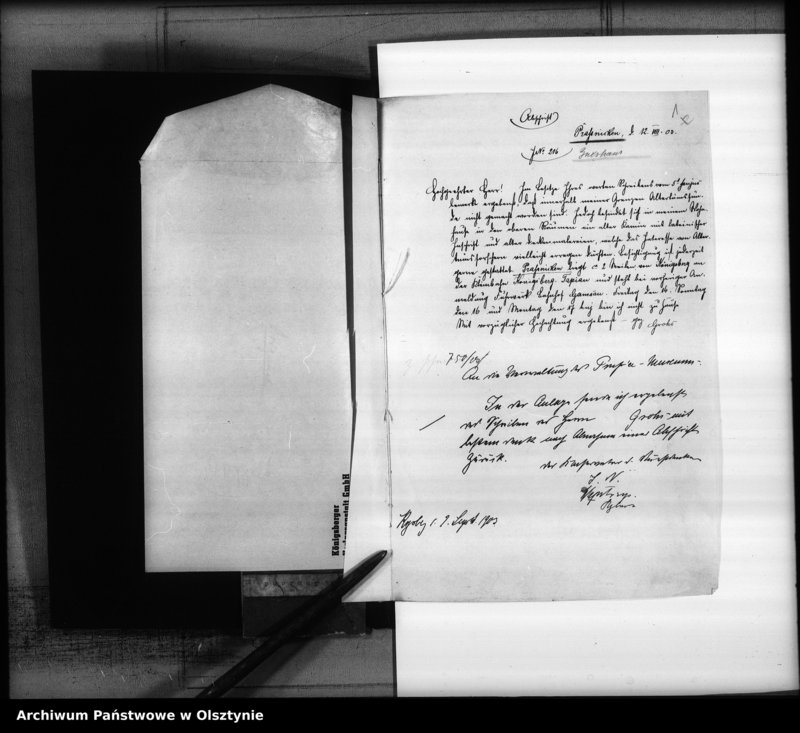 Abschrift
Praßnicken, d. 12. VIII. 03.
J.Nr. 206 Gutshaus
Hochgeehrter Herr! Im Besitze Ihres werten Schreibens vom 5ten
bemerke ergebenst, daß innerhalb meiner Grenzen Altertumsfun-
de nicht gemacht worden sind. Jedoch befindet sich in meinem Wohn-
hause in den oberen Räumen ein alter Kamin mit lateinischer
Inschrift und alten Deckenmalereien, welche das Interesse von Alter-
tumsforschern vielleicht erregen dürften. Besichtigung ist jederzeit
gern gestattet. Praßnicken liegt ca 2 Meilen von Königsberg an
der Kleinbahn Königsberg-Tapiau und steht bei vorheriger An-
meldung Fuhrwerk Bahnhof zur Freitag den 14. Sonntag
den 16 und Montag den 17 bin ich nicht zu Hause
Mit vorzüglicher Hochachtung ergebenst gez Grohs
750/03
An die Verwaltung des Prussia-Museums.
In der Anlage sende ich ergebenst
das Schreiben des Herrn Grohs mit
bestem Dank nach Abnahme einer Abschrift
zurück.
der Konservator d. Kunstdenkm.
J. V.
Kgsbg d. 9. Sept 1903
Königsberger
GmbH
Archiwum Państwowe w Olsztynie